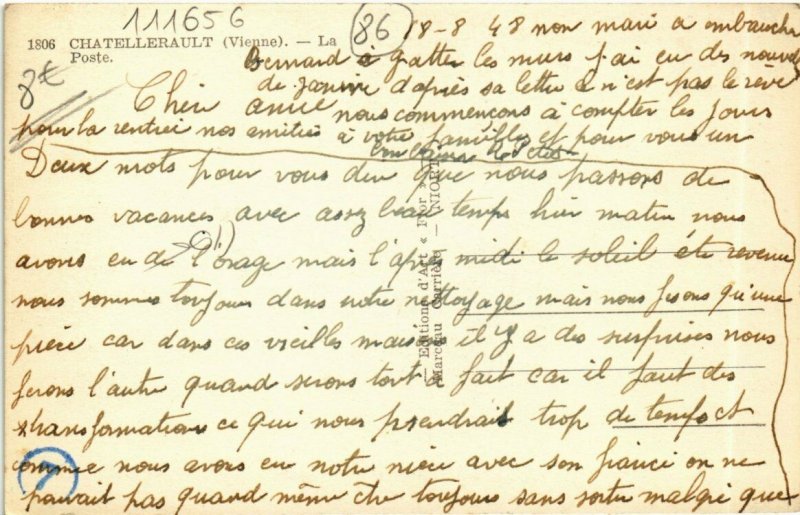 111656
86
18-8 48 non mari a embauché
1806 CHATELLERAULT (Vienne). — La
Poste.
8€
Bernard à gratter les murs j'ai eu des nouvelles
de Janine d'après sa lettre ce n'est pas le rêve
Cher amie nous commençons à compter les jours
pour la rentrée nos amitiés à votre famille et pour vous un
Deux mots pour vous dire que nous passons de
bonnes vacances avec assez beau temps hier matin nous
avons eu de l'orage mais l'après midi le soleil été revenu
nous sommes toujours dans notre nettoyage mais nous ferons qu'une
pièce car dans ces vieilles maisons il y a des surprises nous
ferons l'autre quand serons tout fait car il faut des
transformations ce qui nous prendrait trop de temps et
comme nous avons eu notre nièce avec son fiancé on ne
pouvait pas quand même être toujours sans sortir malgré que
— Editions d'Art «
Marceau Carrière — NIORT
7